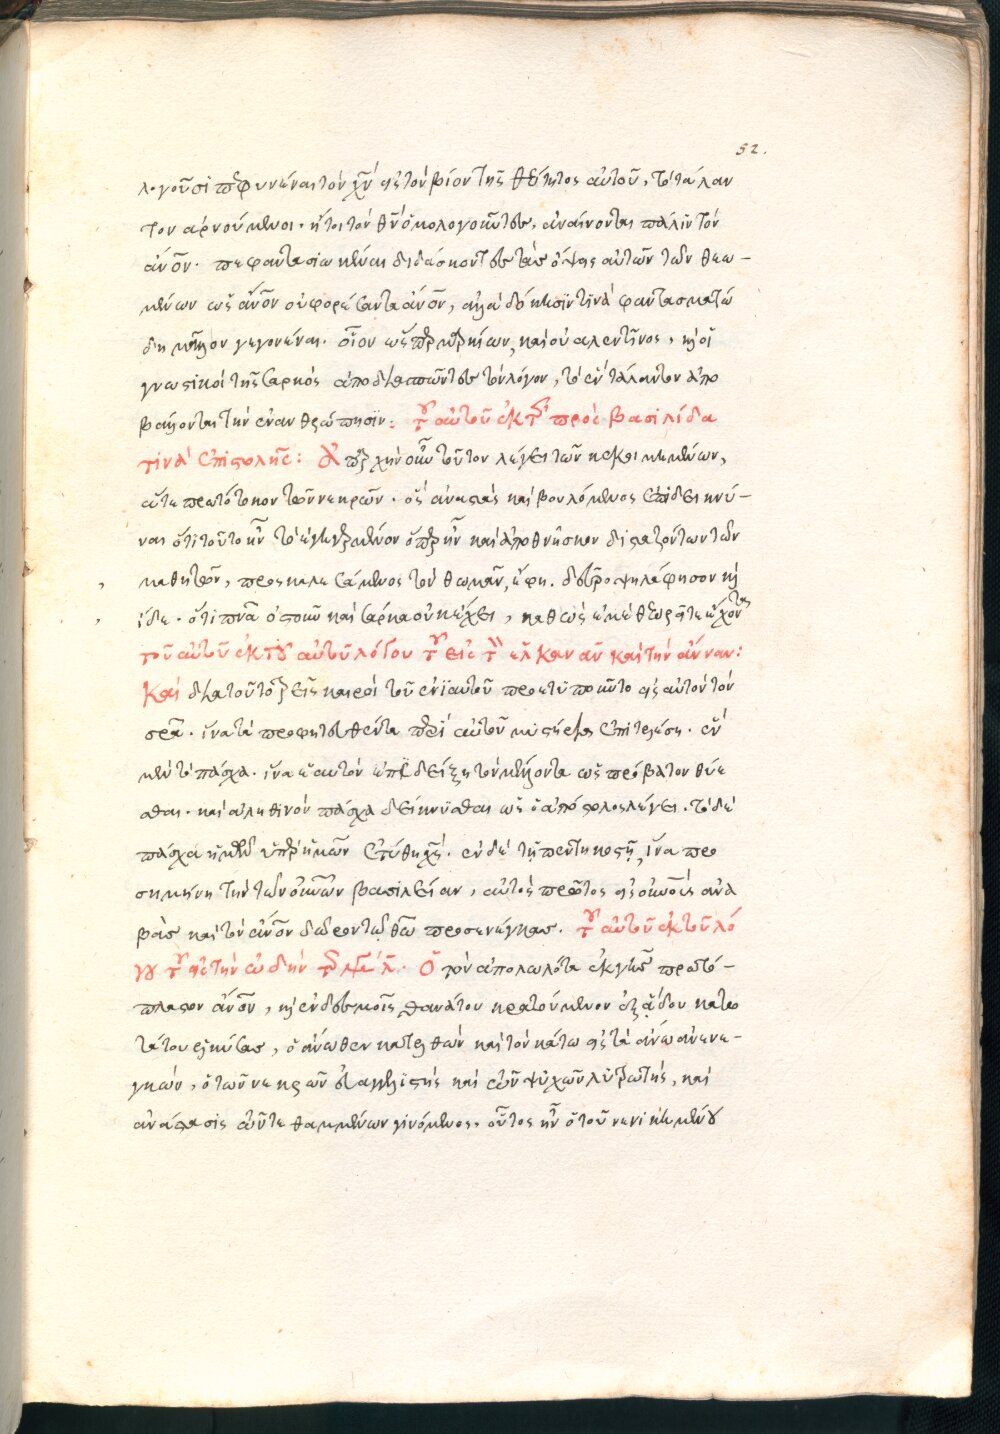 52.
λογοῦσι πεφυκέναι τὸν χν̄ εἰς τὸν βίον τῆς θεότητος αὐτοῦ, τὸ τάλαν
τον ἀρνούμενοι. ἤτοι τὸν θν̄ ὁμολογοῦντες, ἀναίνονται πάλιν τὸν
ἄνον̄. πεφαντασιωκέναι διδάσκοντες τὰς ὄψεις αὐτῶν τῶν θεω –
μένων ὡς ἄνον̄ οὐ φορέσαντα ἄνον̄, ἀλλὰ δόκησίν τινα φαντασματώ
δη μᾶλλον γεγονέναι. οἷον ὥσπερ μαρκίων, καὶ οὐαλεντῖνος, καὶ οἱ
γνωστικοὶ τῆς σαρκὸς ἀποδιασπῶντες τὸν λόγον, τὸ ἓν τάλαντον ἀπο
βάλλονται τὴν ἐνανθρώπησιν: τοῦ αὐτοῦ ἐκ τῆς πρὸς βασιλίδα
τινὰ ἐπιστολῆς: Ἀπαρχὴν οὖν τοῦτον λέγει τῶν κεκοιμημένων,
ἅτε πρωτότοκον τῶν νεκρῶν. ὃς ἀναστὰς καὶ βουλόμενος ἐπιδεικνύ –
ναι ὅτι τοῦτο ἦν τὸ ἐγηγερμένον ὅπερ ἦν καὶ ἀποθνῆσκον δισταζόντων τῶν
μαθητῶν, προσκαλεσάμενος τὸν θωμᾶν, ἔφη. δεῦρο ψηλάφησον καὶ
ἴδε. ὅτι πνᾶ ὀστοῦν καὶ σάρκα οὐκ ἔχει, καθὼς ἐμὲ θεωρεῖτε ἔχοντα
τοῦ αὐτοῦ ἐκ τοῦ αὐτοῦ λόγου τοῦ εἰς τὸν ελκαναν καὶ τὴν ἄνναν:
Καὶ διὰ τοῦτο τρεῖς καιροὶ τοῦ ἐνιαυτοῦ προετυποῦντο εἰς αὐτὸν τὸν
σρᾱ. ἵνα τὰ προφητευθέντα περὶ αὐτοῦ μυστήρια ἐπιτελέσῃ. ἐν
μὲν τὸ πάσχα. ἵνα ἑαυτὸν ἐπιδείξῃ τὸν μέλλοντα ὡς πρόβατον θύε
σθαι. καὶ ἀληθινὸν πάσχα δείκνυσθαι ὡς ὁ ἀπόστολος λέγει. τὸ δὲ
πάσχα ἡμῶν ὑπὲρ ἡμῶν ἐτύθη χς̄. ἐν δὲ τῇ πεντηκοστῇ, ἵνα προ
σημήνῃ τὴν τῶν οὐνῶν βασιλείαν, αὐτὸς πρῶτος εἰς οὐνοὺς ἀνα
βὰς καὶ τὸν ἄνον̄ δῶρον τῷ θῶ προσενέγκας. τοῦ αὐτοῦ ἐκ τοῦ λό
γου τοῦ εἰς τὴν ᾠδὴν τὴν μεγάλην. Ὁ τὸν ἀπολωλότα ἐκ γῆς πρωτό –
πλαστον ἄνον̄, καὶ ἐν δεσμοῖς θανάτου κρατούμενον ἐξ ᾅδου κατω
τάτου ἑλκύσας, ὁ ἄνωθεν κατελθὼν καὶ τὸν κάτω εἰς τὰ ἄνω ἀνενε –
γκών, ὁ τῶν νεκρῶν εὐαγγελιστὴς καὶ τῶν ψυχῶν λυτρωτής, καὶ
ἀνάστασις τῶν τεθαμμένων γινόμενος. οὗτος ἦν ὁ τοῦ νενικημένου